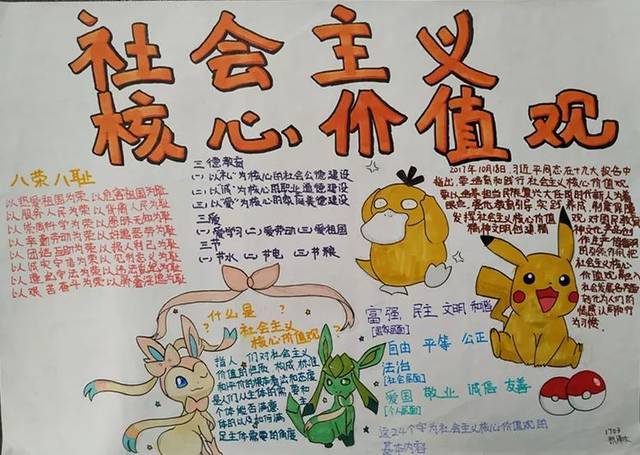 社会主义
核心价值观
八荣八耻
以热爱祖国为荣 以危害祖国为耻
以服务人民为荣 以背离人民为耻
以崇尚科学为荣 以愚昧无知为耻
以辛勤劳动为荣 以好逸恶劳为耻
以团结互助为荣 以损人利己为耻
以诚实守信为荣 以见利忘义为耻
以遵纪守法为荣 以违法乱纪为耻
以艰苦奋斗为荣 以骄奢淫逸为耻
三德教育
(一)以“礼”为核心的社会公德建设
(二)以“诚”为核心的职业道德建设
(三)以“爱”为核心的家庭美德建设
三爱
(一)爱学习 (二)爱劳动 (三)爱祖国
三节
(一)节水 (二)节电 (三)节粮
2017年10月18日,习近平同志在十九大报告中
指出,要培育和践行社会主义核心价值观.
要以培养担当民族复兴大任的时代新人为着
眼点,强化教育引导、实践养成、制度保障,
发挥社会主义核心价值观对国民教育、
精神文明创建、精
神文化产品创
作生产传播
的引领作用,把
社会主义核心
价值观融入
社会发展各方面,
转化为人们的
情感认同和行
为习惯.
什么是
社会主义
核心价值观?
指人们对社会主义
价值的性质、构成、标准
和评价的根本看法和态度
是人们从主体的需要和
客体能否满足主
体的以及如何满
足主体需要的角度
富强 民主 文明 和谐
[国家层面]
自由 平等 公正
法治
[社会层面]
爱国 敬业 诚信 友善
[个人层面]
这24个字为社会主义核心价值观的
基本内容
1703